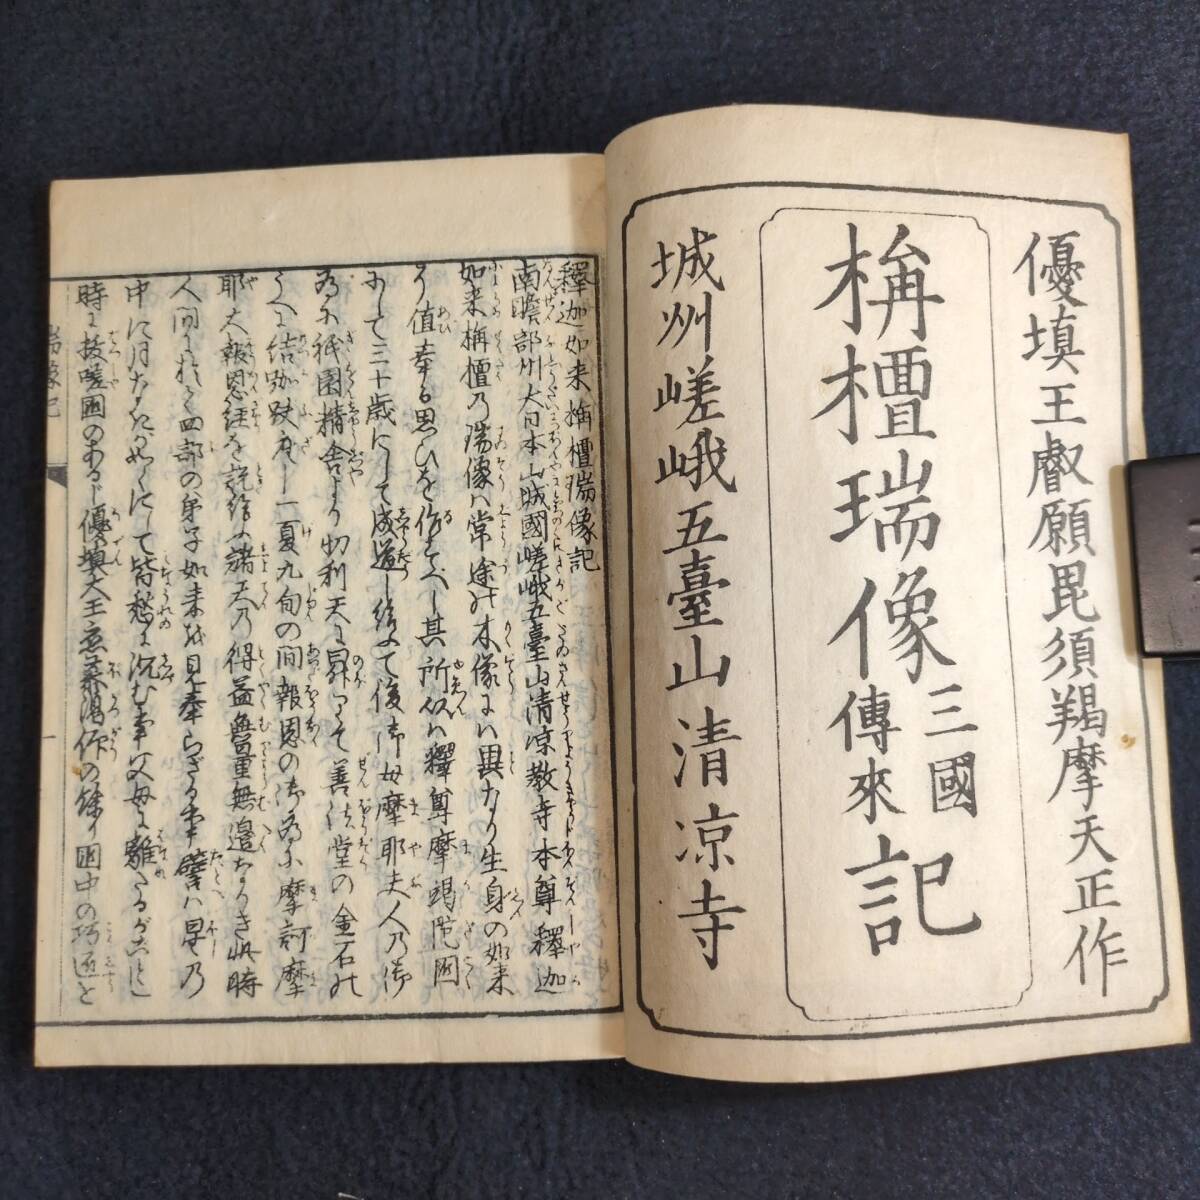 優填王叡願毘須羯摩天正作
栴檀瑞像三國傳來記
城州嵯峨五臺山清凉寺
釋迦如来栴檀瑞像記
南瞻部州大日本山城國嵯峨五臺山清凉教寺本尊釋迦
如来栴檀乃瑞像ハ常途の木像にハ異なり生身の如来
に値奉る思ひを作すべし其所以ハ釋尊摩竭陀國
にして三十歳にして成道し給ひて後御母摩耶夫人乃御
為に祇園精舎より忉利天に昇りて善法堂の金石の
うへに結跏趺座し一夏九旬の間報恩の御為に摩訶摩
耶大報恩経を説給ひ諸天乃得益無量無邊なりき此時
人間におゐて四部の弟子如来を見奉らざる事譬ハ星乃
中に月なきがごとくにして皆愁に沈む事父母に離たるがごとし
時に拔嗟國のあるじ優填大王恋慕渇仰の餘り國中の巧匠を
瑞像記
一